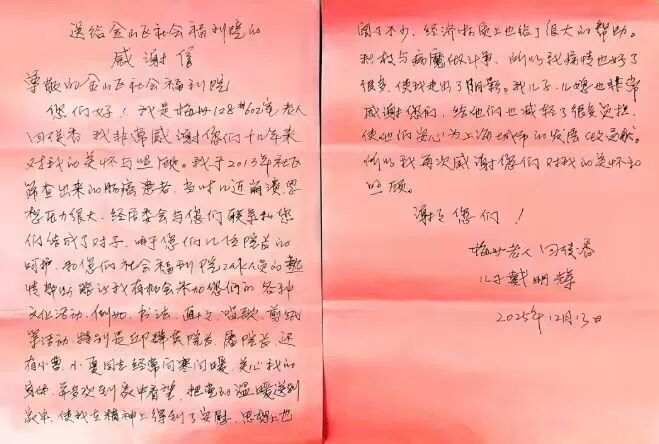 送给金山区社会福利院的
感谢信
尊敬的金山区社会福利院
您们好！我是梅州128#602室老人
我非常感谢您们十几年来
对我的关怀与照顾。我于2013年社区
筛查出来的肠癌患者，当时几近崩溃思
想压力很大，经居委会与您们联系和您
们结成了对子，由于您们几位院长的
呵护，和您们社会福利院工作人员的热
情帮助能让我有机会参加您们的各种
文化活动，例如，书法、画画、唱歌、剪纸
等活动，特别是 院长、潘院长，还
有小曹、小夏同志经常问寒问暖，关心我的
身体，并多次到家中看望，把党的温暖送到
家中，使我在精神上得到了安慰，思想上也
阔不少，经济物质上也给了很大的帮助。
积极与病魔做斗争，所以我病情也好了
很多，使我走出了阴影。我儿子、儿媳也非常
感谢您们，给他们也减轻了很多负担，
使他们安心为上海城市的发展做贡献。
所以我再次感谢您们对我的关怀和
照顾。
谢谢您们！
梅州老人
儿子戴明辉
2025年12月13日